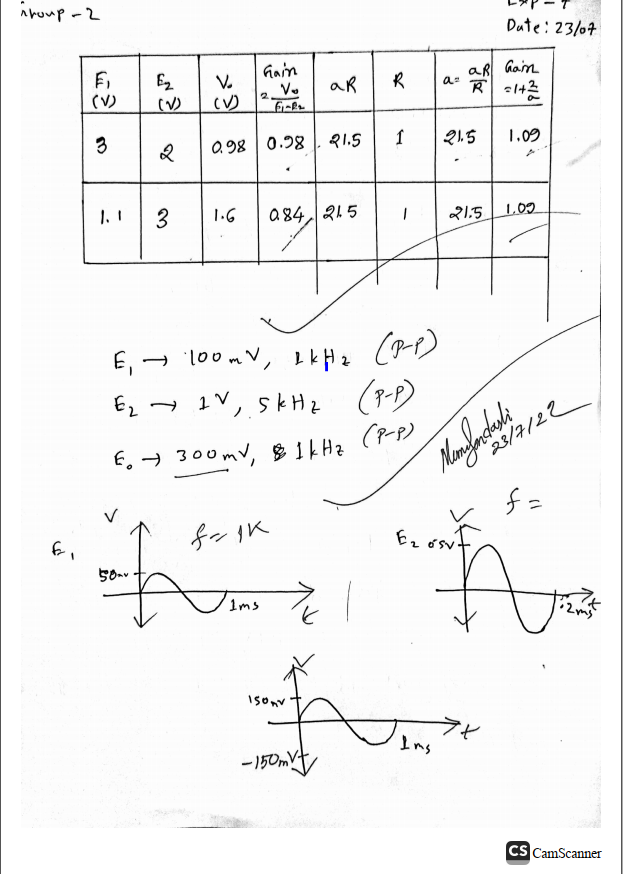 Group - 2
Exp - 4
Date: 23/07
E₁ (V) E₂ (V) V₀ (V) Gain = V₀/E₁-E₂ aR R a = aR/R Gain = 1+2/a
3 2 0.98 0.98 21.5 1 21.5 1.09
1.1 3 1.6 0.84 21.5 1 21.5 1.09
E₁ → 100mV, 1kHz (P-P)
E₂ → 1V, 5kHz (P-P)
E₀ → 300mV, 1kHz (P-P)
23/7/22
E₁ V f = 1K
50mv
1ms t
V f =
E₂ 0.5V
.2ms t
V
150mv
1ms t
-150mV
CS CamScanner